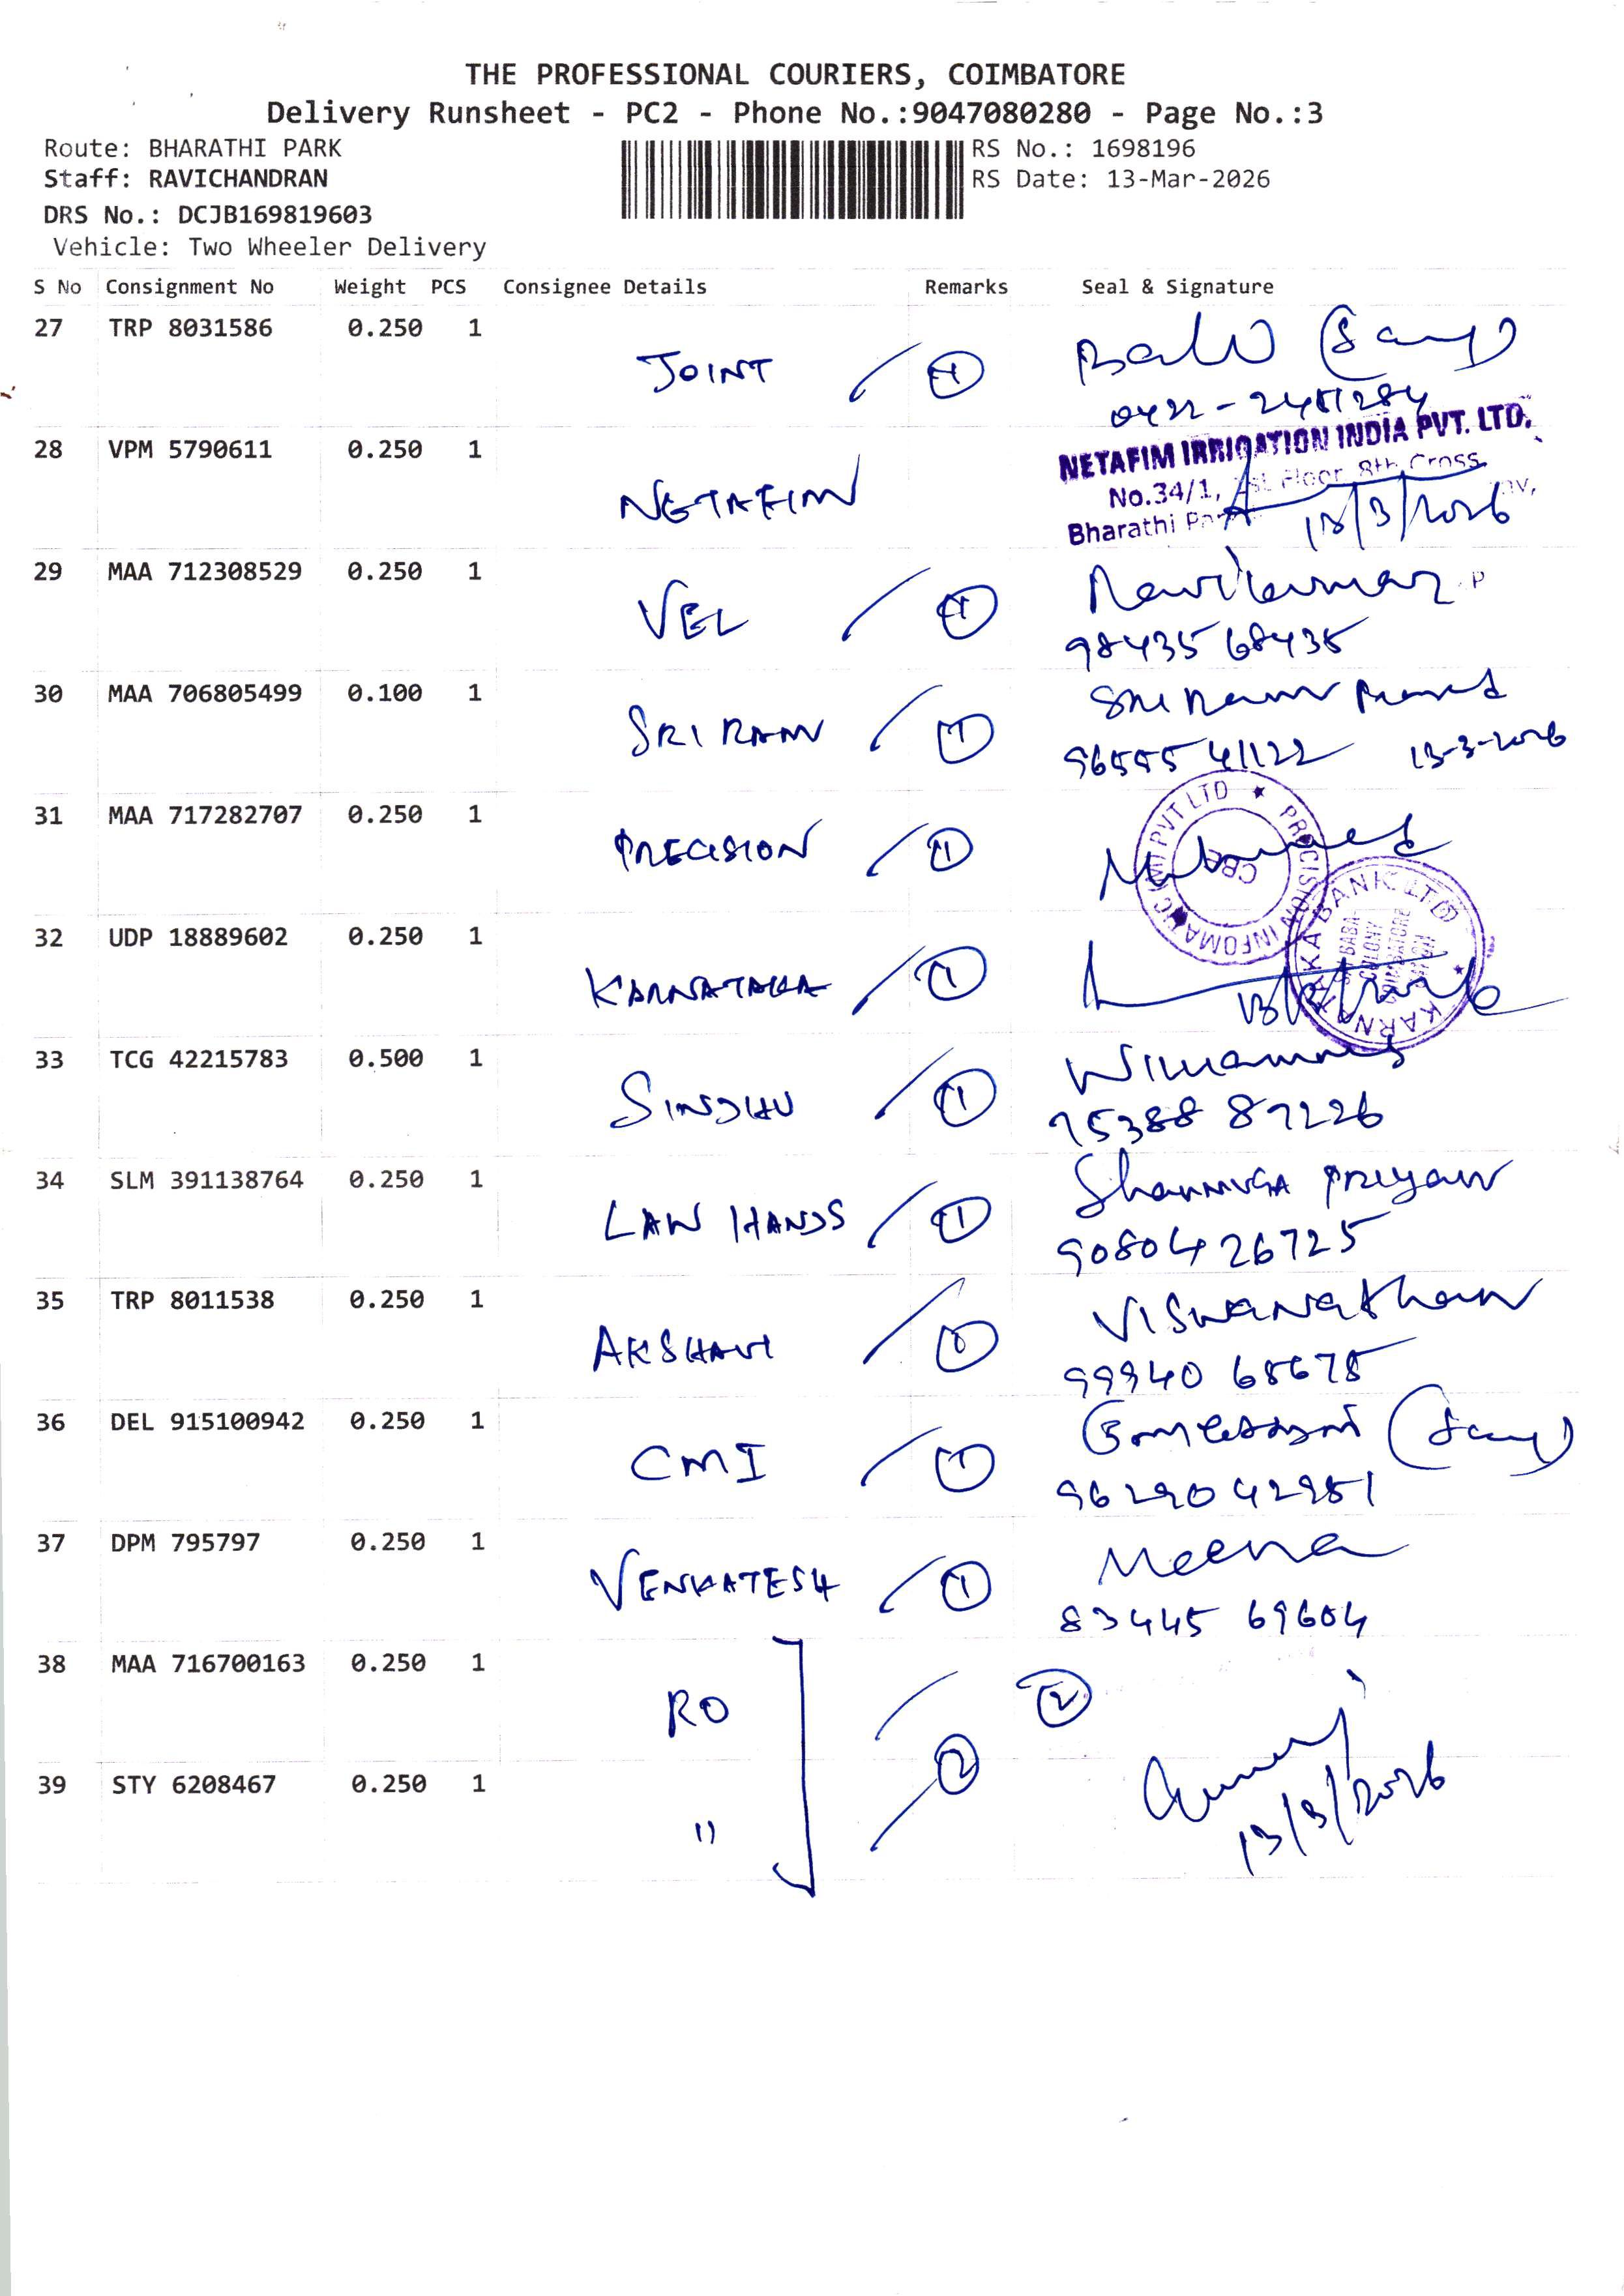 THE PROFESSIONAL COURIERS, COIMBATORE
Delivery Runsheet - PC2 - Phone No.:9047080280 - Page No.:3
Route: BHARATHI PARK
Staff: RAVICHANDRAN
DRS No.: DCJB169819603
Vehicle: Two Wheeler Delivery
RS No.: 1698196
RS Date: 13-Mar-2026
S No Consignment No Weight PCS Consignee Details Remarks Seal & Signature
27 TRP 8031586 0.250 1 JOINT 1
28 VPM 5790611 0.250 1 NETAFIM
NETAFIM IRRIGATION INDIA PVT. LTD.
No.34/1, 1st Floor, 8th Cross
Bharathi
13/3/2026
29 MAA 712308529 0.250 1 VEL 1 Ravikumar P
98435 68435
30 MAA 706805499 0.100 1 SRI RAM 1 Sri Ram
96555 41122 13-3-2026
31 MAA 717282707 0.250 1 PRECISION 1
PRECISION INFOMATIC (M) PVT LTD
CBE
32 UDP 18889602 0.250 1 KARNATAKA 1
KARNATAKA BANK LTD
SAI BABA
COLONY
COIMBATORE
33 TCG 42215783 0.500 1 SINDHU 1
75388 87226
34 SLM 391138764 0.250 1 LAW HANDS 1 Shanmuga Priyan
90804 26725
35 TRP 8011538 0.250 1 AKSHAVI 1 Viswanathan
99940 68675
36 DEL 915100942 0.250 1 CMI 1
96290 42951
37 DPM 795797 0.250 1 VENKATESH 1 Meena
83445 69604
38 MAA 716700163 0.250 1 RO 2
39 STY 6208467 0.250 1 " 2
13/3/2026